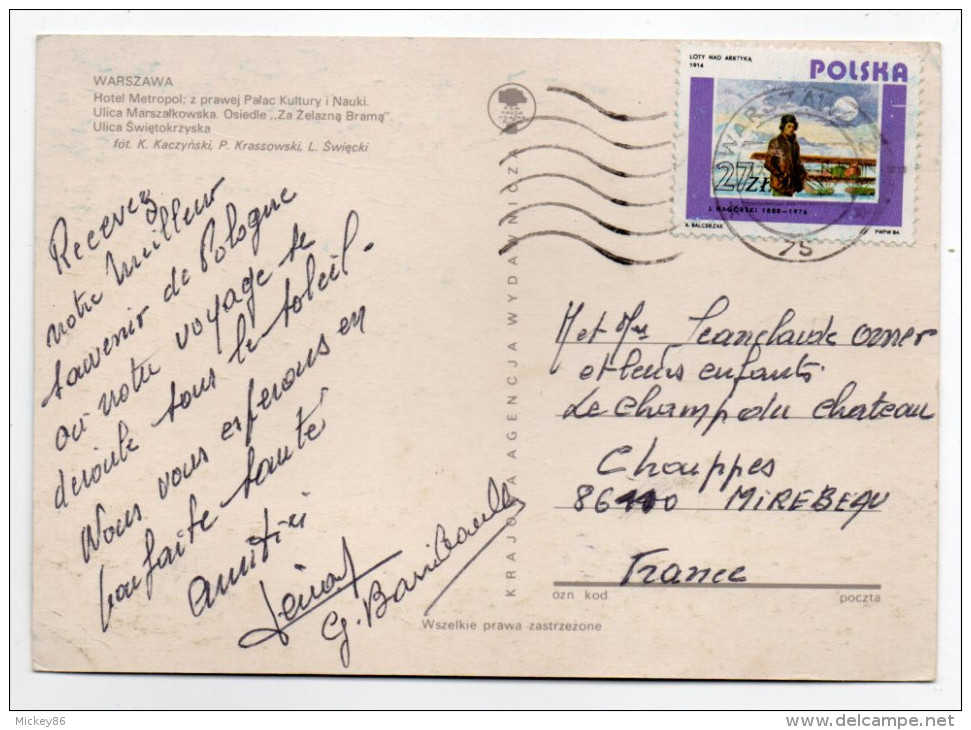 WARSZAWA
Hotel Metropol; z prawej Pałac Kultury i Nauki.
Ulica Marszałkowska. Osiedle „Za Żelazną Bramą”.
Ulica Świętokrzyska
fot. K. Kaczyński, P. Krassowski, L. Święcki
Recevez
notre meilleur
souvenir de Pologne
où notre voyage se
déroule sous le soleil.
Nous vous espérons en
parfaite santé
Amitiés
G.
KRAJOWA AGENCJA WYDAWNICZA
LOTY NAD ARKTYKĄ
1914
POLSKA
27 ZŁ
J. NAGÓRSKI 1888-1976
A. BALCERZAK
PWPW 84
WARSZAWA
75
M et Mme Jeanclaude
et leurs enfants
Le Champ du chateau
Chouppes
86110 MIREBEAU
France
ozn. kod
poczta
Wszelkie prawa zastrzeżone
Mickey86
www.delcampe.net